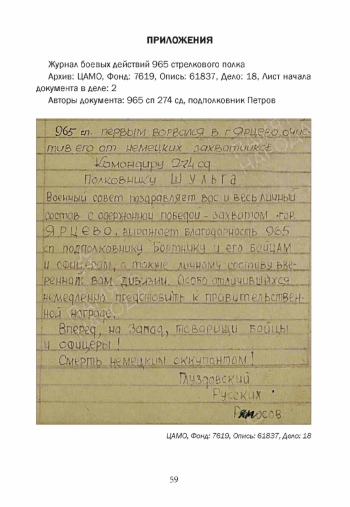 ПРИЛОЖЕНИЯ
Журнал боевых действий 965 стрелкового полка
Архив: ЦАМО, Фонд: 7619, Опись: 61837, Дело: 18, Лист начала
документа в деле: 2
Авторы документа: 965 сп 274 сд, подполковник Петров
965 сп. первым ворвался в г. Ярцево, очис-
тив его от немецких захватчиков.
Командиру 274 сд
Полковнику ШУЛЬГА
Военный совет поздравляет вас и весь личный
состав с одержанной победой - захватом гор.
ЯРЦЕВО, выражает благодарность 965
сп подполковнику и его бойцам
и офицерам, а также личному составу вве-
ренной вам дивизии. Особо отличившихся
немедленно представить к правительствен-
ной награде.
Вперед, на Запад, товарищи бойцы
и офицеры!
Смерть немецким оккупантам!
Глуздовский
Русских
ЦАМО, Фонд: 7619, Опись: 61837, Дело: 18
59